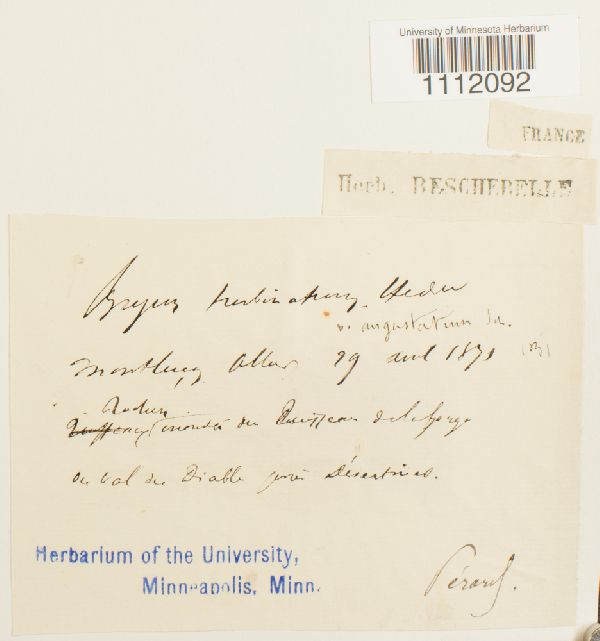 University of Minnesota Herbarium
1112092
FRANCE
Herb. BESCHERELLE
Bryum turbinatum Hedw
v. angustatum
Montluçon Allier 29 avril 187
Rochers du Ruisseau de la Gorge
du Val du Diable près Désertines.
Herbarium of the University,
Minneapolis, Minn.
Pérard.